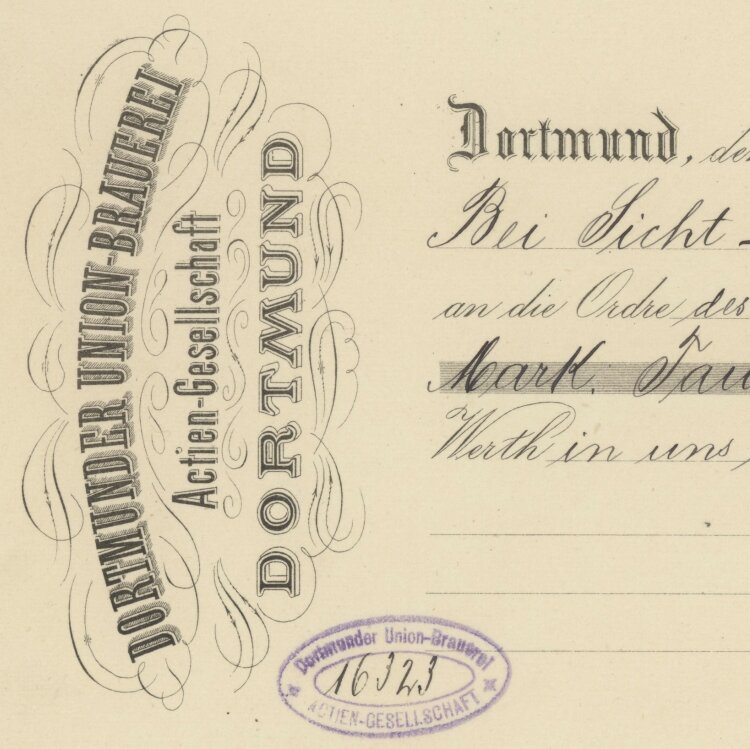 DORTMUNDER UNION-BRAUEREI
Actien-Gesellschaft
DORTMUND
Dortmund, den
Bei Sicht
an die Ordre des
Mark. Tau
Werth in uns
Dortmunder Union-Brauerei
16323
ACTIEN-GESELLSCHAFT